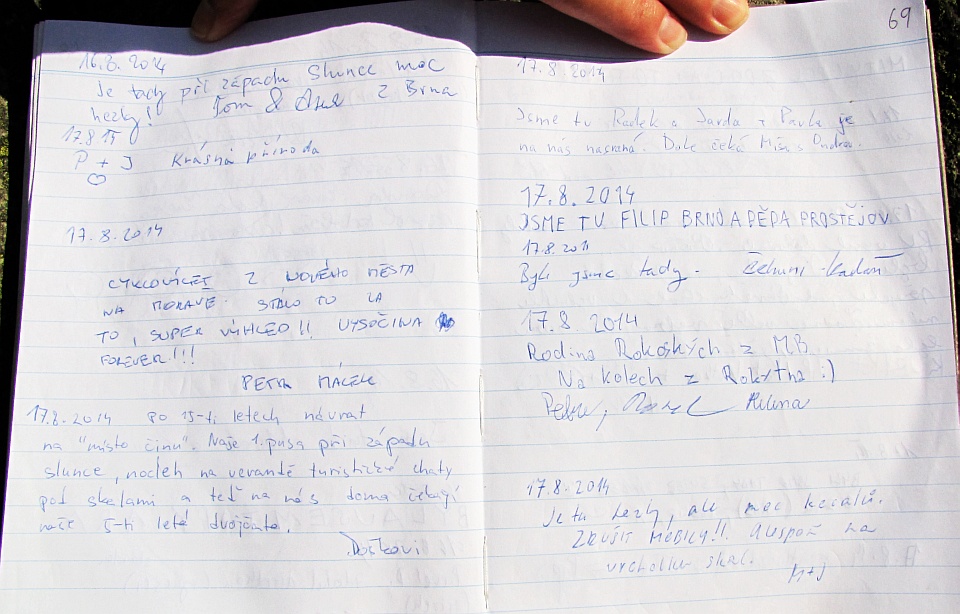 16.8.2014
Je tady při západu slunce moc
hezky! Tom & z Brna
17.8 15
P + J Krásná příroda
17.8.2014
CYKLOVÝLET Z NOVÉHO MĚSTA
NA MORAVĚ. STÁLO TO ZA
TO, SUPER VÝHLED!! VYSOČINA
FOREVER!!!
PETR MACEK
17.8.2014 Po 15-ti letech návrat
na "místo činu". Naše 1. pusa při západu
slunce, nocleh na verandě turistické chaty
pod skalami a teď na nás doma čekají
naše 5-ti letá dvojčata.
Doškovi
69
17.8.2014
Jsme tu Radek a Jarda z Pavla je
na nás nasraná. Dole čeká Míša s
17.8.2014
JSME TU FILIP BRNO A DĚDA PROSTĚJOV
17.8.2011
Byli jsme tady.
17.8.2014
Rodina Rokoských z MB
Na kolech z Rokytna :)
Petr, Pavel Milena
17.8.2014
Je tu hezky, ale moc kecalů.
ZRUŠIT MOBILY!! Alespoň na
vrcholku skal.
M+J